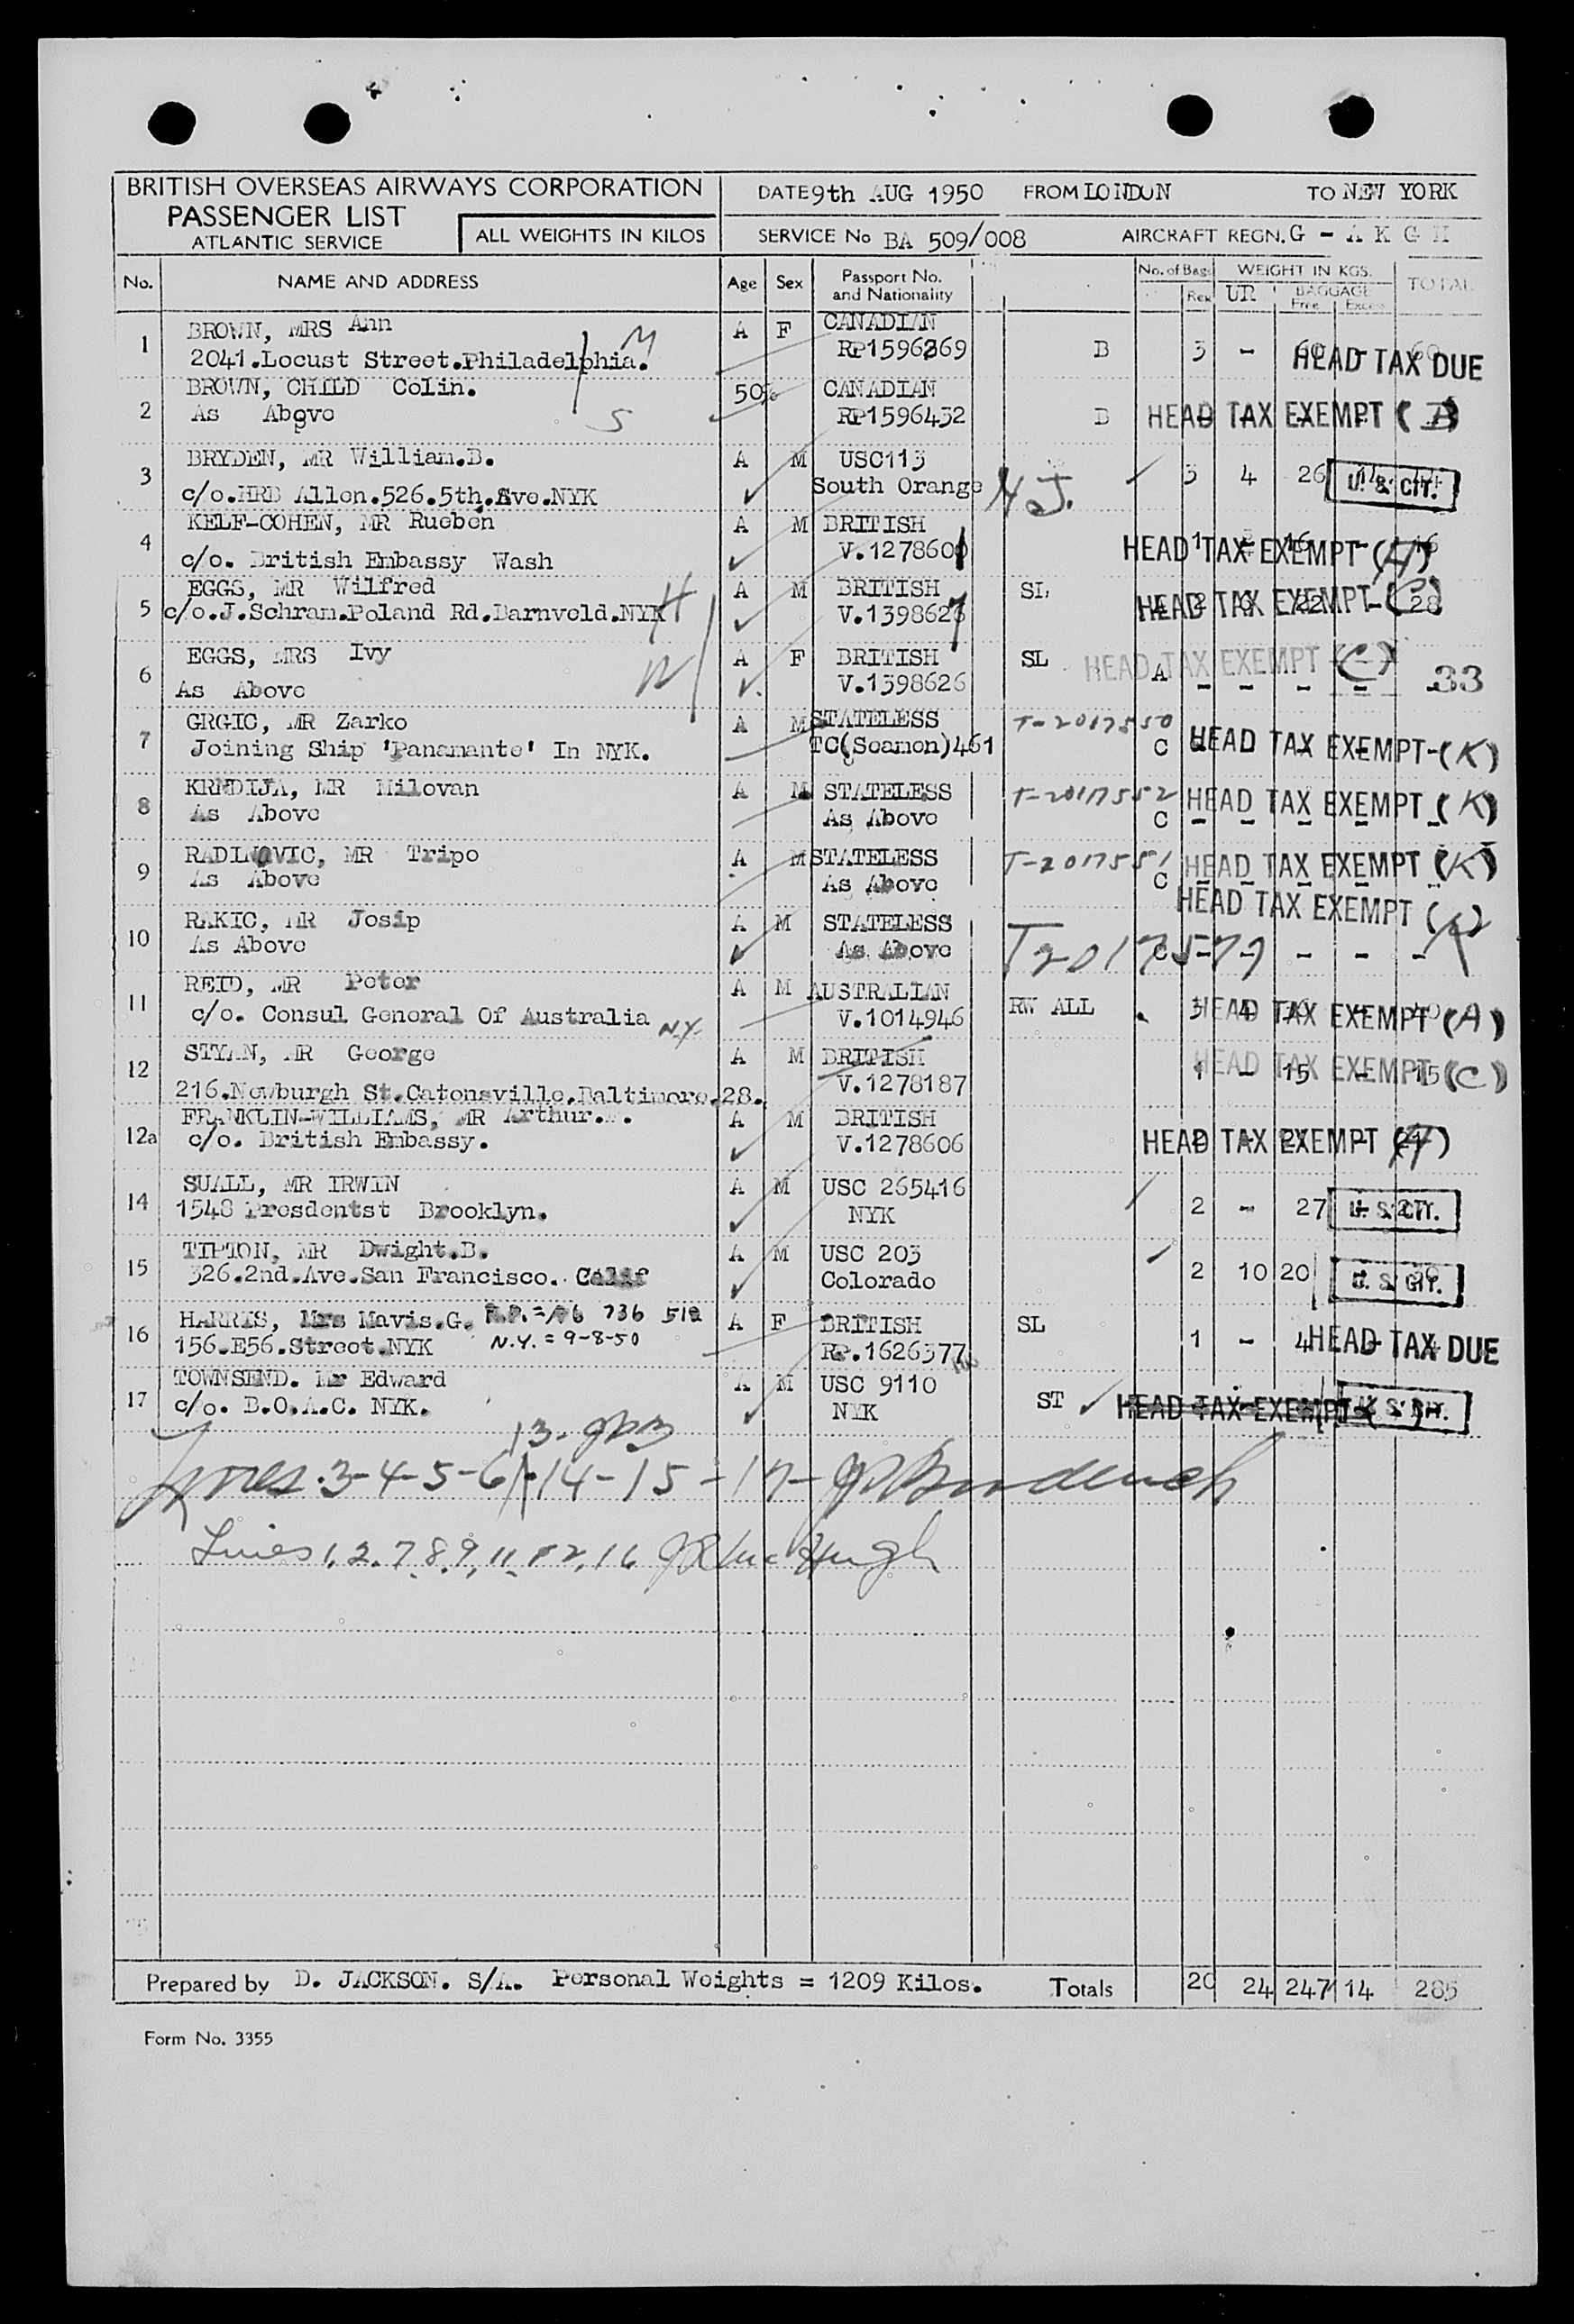 BRITISH OVERSEAS AIRWAYS CORPORATION
PASSENGER LIST
ATLANTIC SERVICE
ALL WEIGHTS IN KILOS
DATE 9th AUG 1950 FROM LONDON TO NEW YORK
SERVICE No BA 509/008 AIRCRAFT REGN. G - A K G H
No. NAME AND ADDRESS Age Sex Passport No. and Nationality No. of Bags Rex WEIGHT IN KGS. UR BAGGAGE Free Excess TOTAL
1 BROWN, MRS Ann A F CANADIAN
2041.Locust Street.Philadelphia. M RP1596269 B 3 - 60 - 60 HEAD TAX DUE
2 BROWN, CHILD Colin. 50% CANADIAN
As Above S RP1596432 B HEAD TAX EXEMPT (B)
3 BRYDEN, MR William.B. A M USC113
c/o.HRD Allen.526.5th.Ave.NYK South Orange N.J. 3 4 26 14 44 U. S. CIT.
4 KELF-COHEN, MR Rueben A M BRITISH
c/o. British Embassy Wash V.1278601 1 16 - 16 HEAD TAX EXEMPT (A)
5 EGGS, MR Wilfred A M BRITISH SL
c/o.J.Schram.Poland Rd.Barnveld.NYK H V.1398627 HEAD TAX EXEMPT (C) 22 - 28
6 EGGS, MRS Ivy A F BRITISH SL HEAD TAX EXEMPT (C)
As Above W V.1398626 A - - - - 33
7 GRGIC, MR Zarko A M STATELESS T-2017550
Joining Ship 'Panamante' In NYK. TC(Seamen)461 C HEAD TAX EXEMPT (K)
8 KRNDIJA, MR Milovan A M STATELESS T-2017552 HEAD TAX EXEMPT (K)
As Above As Above C - - - - -
9 RADINOVIC, MR Tripo A M STATELESS T-2017551 HEAD TAX EXEMPT (K)
As Above As Above C - - - - -
HEAD TAX EXEMPT (K)
10 RAKIC, MR Josip A M STATELESS
As Above As Above T2017577 C - - - - -
11 REID, MR Peter A M AUSTRALIAN RW ALL
c/o. Consul General Of Australia N.Y. V.1014946 3 4 HEAD TAX EXEMPT (A)
12 STYAN, MR George A M BRITISH
216.Newburgh St.Catonsville.Baltimore.28. V.1278187 1 - 15 - 15 HEAD TAX EXEMPT (C)
12a FRANKLIN-WILLIAMS, MR Arthur. A M BRITISH
c/o. British Embassy. V.1278606 HEAD TAX EXEMPT (A) 2 - 21 - 21
14 SUALL, MR IRWIN A M USC 265416
1548 Presdentst Brooklyn. NYK 2 - 27 - 27 U. S. CIT.
15 TIPTON, MR Dwight.B. A M USC 203
326.2nd.Ave.San Francisco. Calif Colorado 2 10 20 - 30 U. S. CIT.
16 HARRIS, Mrs Mavis.G. 736 A F BRITISH SL
156.E56.Street.NYK N.Y. = 9-8-50 RP.1626377 1 - 4 HEAD TAX DUE
17 TOWNSEND. Mr Edward A M USC 9110 ST
c/o. B.O.A.C. NYK. NYK HEAD TAX EXEMPT ( ) U. S. CIT.
13-
Lines 3-4-5-6 14-15-17-
Lines 1, 2, 7, 8, 9, 11, 12, 16
Prepared by D. JACKSON. S/A. Personal Weights = 1209 Kilos. Totals 20 24 247 14 285
Form No. 3355